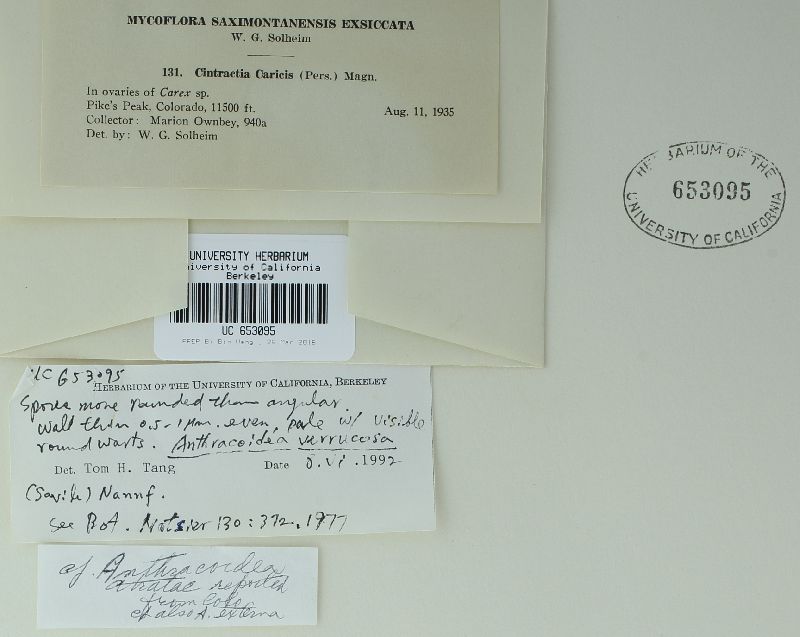 MYCOFLORA SAXIMONTANENSIS EXSICCATA
W. G. Solheim
131. Cintractia Caricis (Pers.) Magn.
In ovaries of Carex sp.
Pike's Peak, Colorado, 11500 ft.
Aug. 11, 1935
Collector: Marion Ownbey, 940a
Det. by: W. G. Solheim
HERBARIUM OF THE
653095
UNIVERSITY OF CALIFORNIA
UNIVERSITY HERBARIUM
University of California
Berkeley
UC 653095
UC 653095
HERBARIUM OF THE UNIVERSITY OF CALIFORNIA, BERKELEY
Spores more rounded than angular.
wall thin 0.5-1 µm. even, pale w/ visible
round warts. Anthracoidea verrucosa
Det. Tom H. Tang Date 8.vi.1992
(Savile) Nannf.
see Bot. Notiser 130: 372, 1977
cf. Anthracoidea
atratae reported
from Colo
cf also A. externa